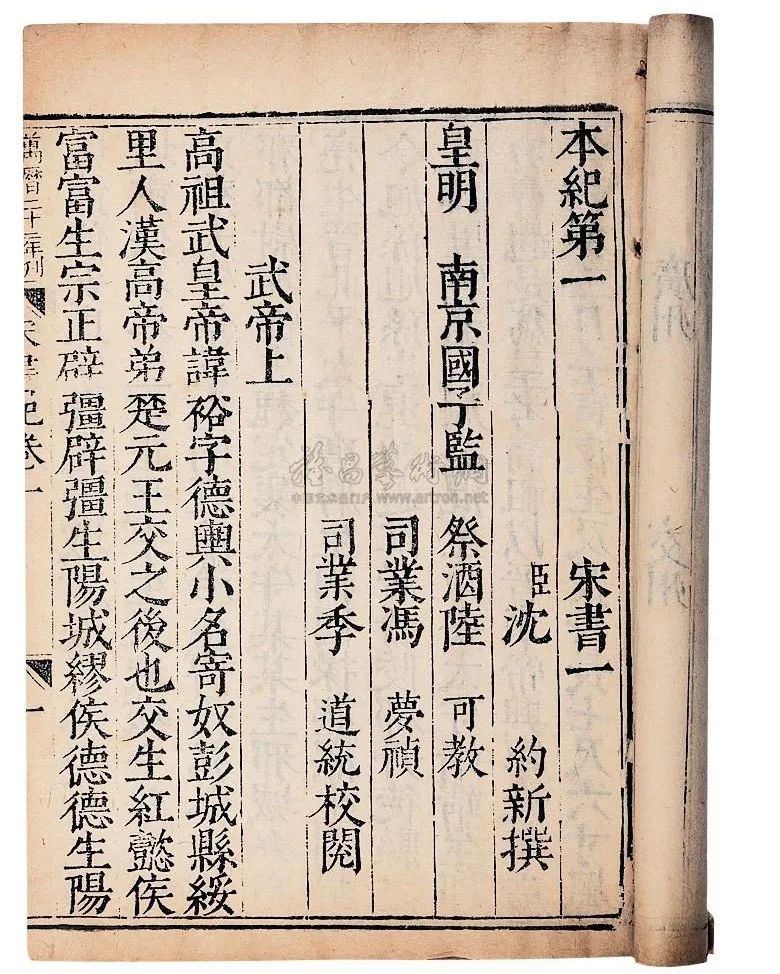 本紀第一 宋書一
臣沈 約新撰
皇明 南京國子監 祭酒陸 可教
司業馮 夢禎
司業季 道統校閱
武帝上
高祖武皇帝諱裕字德輿小名寄奴彭城縣綏
里人漢高帝弟楚元王交之後也交生紅懿侯
富富生宗正辟彊辟彊生陽城繆侯德德生陽
萬曆二十二年刊 卷一 一
www.artron.net
廣州 交州